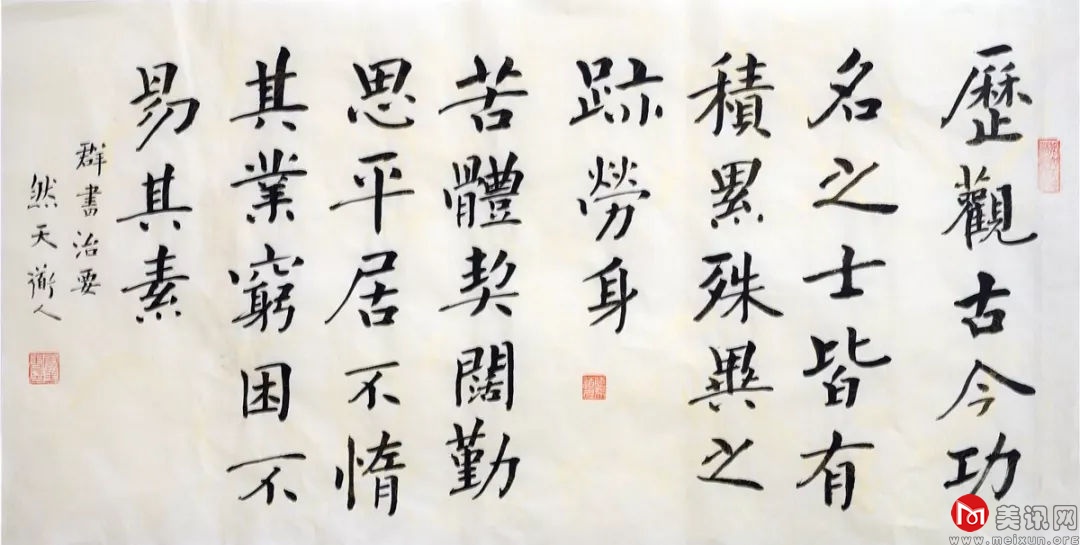 歷觀古今功
名之士皆有
積累殊異之
跡勞身
苦體契闊勤
思平居不惰
其業窮困不
易其素
群書治要
然天衢人
美讯网
www.meixun.org